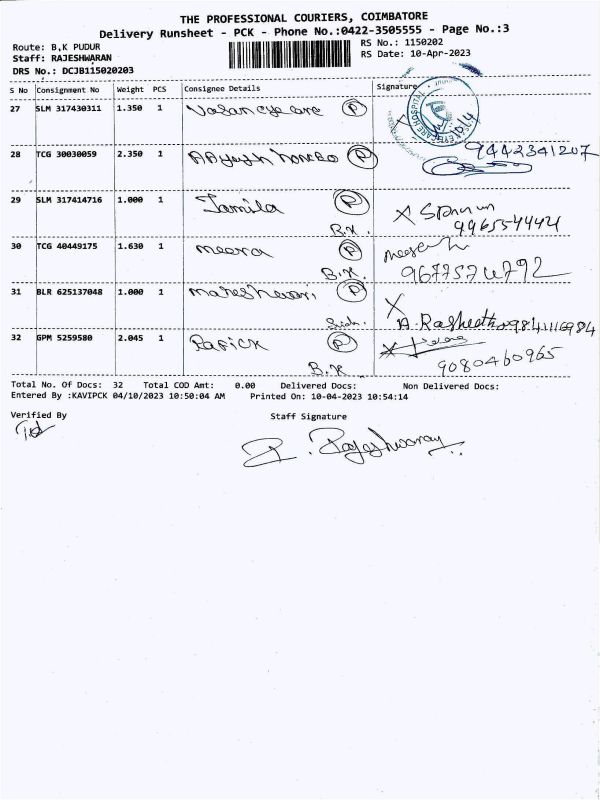 THE PROFESSIONAL COURIERS, COIMBATORE
Delivery Runsheet - PCK - Phone No.:0422-3505555 - Page No.:3
Route: B,K PUDUR
RS No.: 1150202
Staff: RAJESHWARAN
RS Date: 10-Apr-2023
DRS No.: DCJB115020203
S No Consignment No Weight PCS Consignee Details Signature
27 SLM 317430311 1.350 1 Vasan eye care P
28 TCG 30030059 2.350 1 P 9442341207
29 SLM 317414716 1.000 1 Jamila P
B.K. 9965544424
30 TCG 40449175 1.630 1 meera P
B.K. 9677574792
31 BLR 625137048 1.000 1 maheshwari P
A. Rasheetha 9841116984
32 GPM 5259580 2.045 1 Rafick P
B.K 9080460965
Total No. Of Docs: 32 Total COD Amt: 0.00 Delivered Docs: Non Delivered Docs:
Entered By :KAVIPCK 04/10/2023 10:50:04 AM Printed On: 10-04-2023 10:54:14
Verified By Staff Signature
R. Rajeshwaran